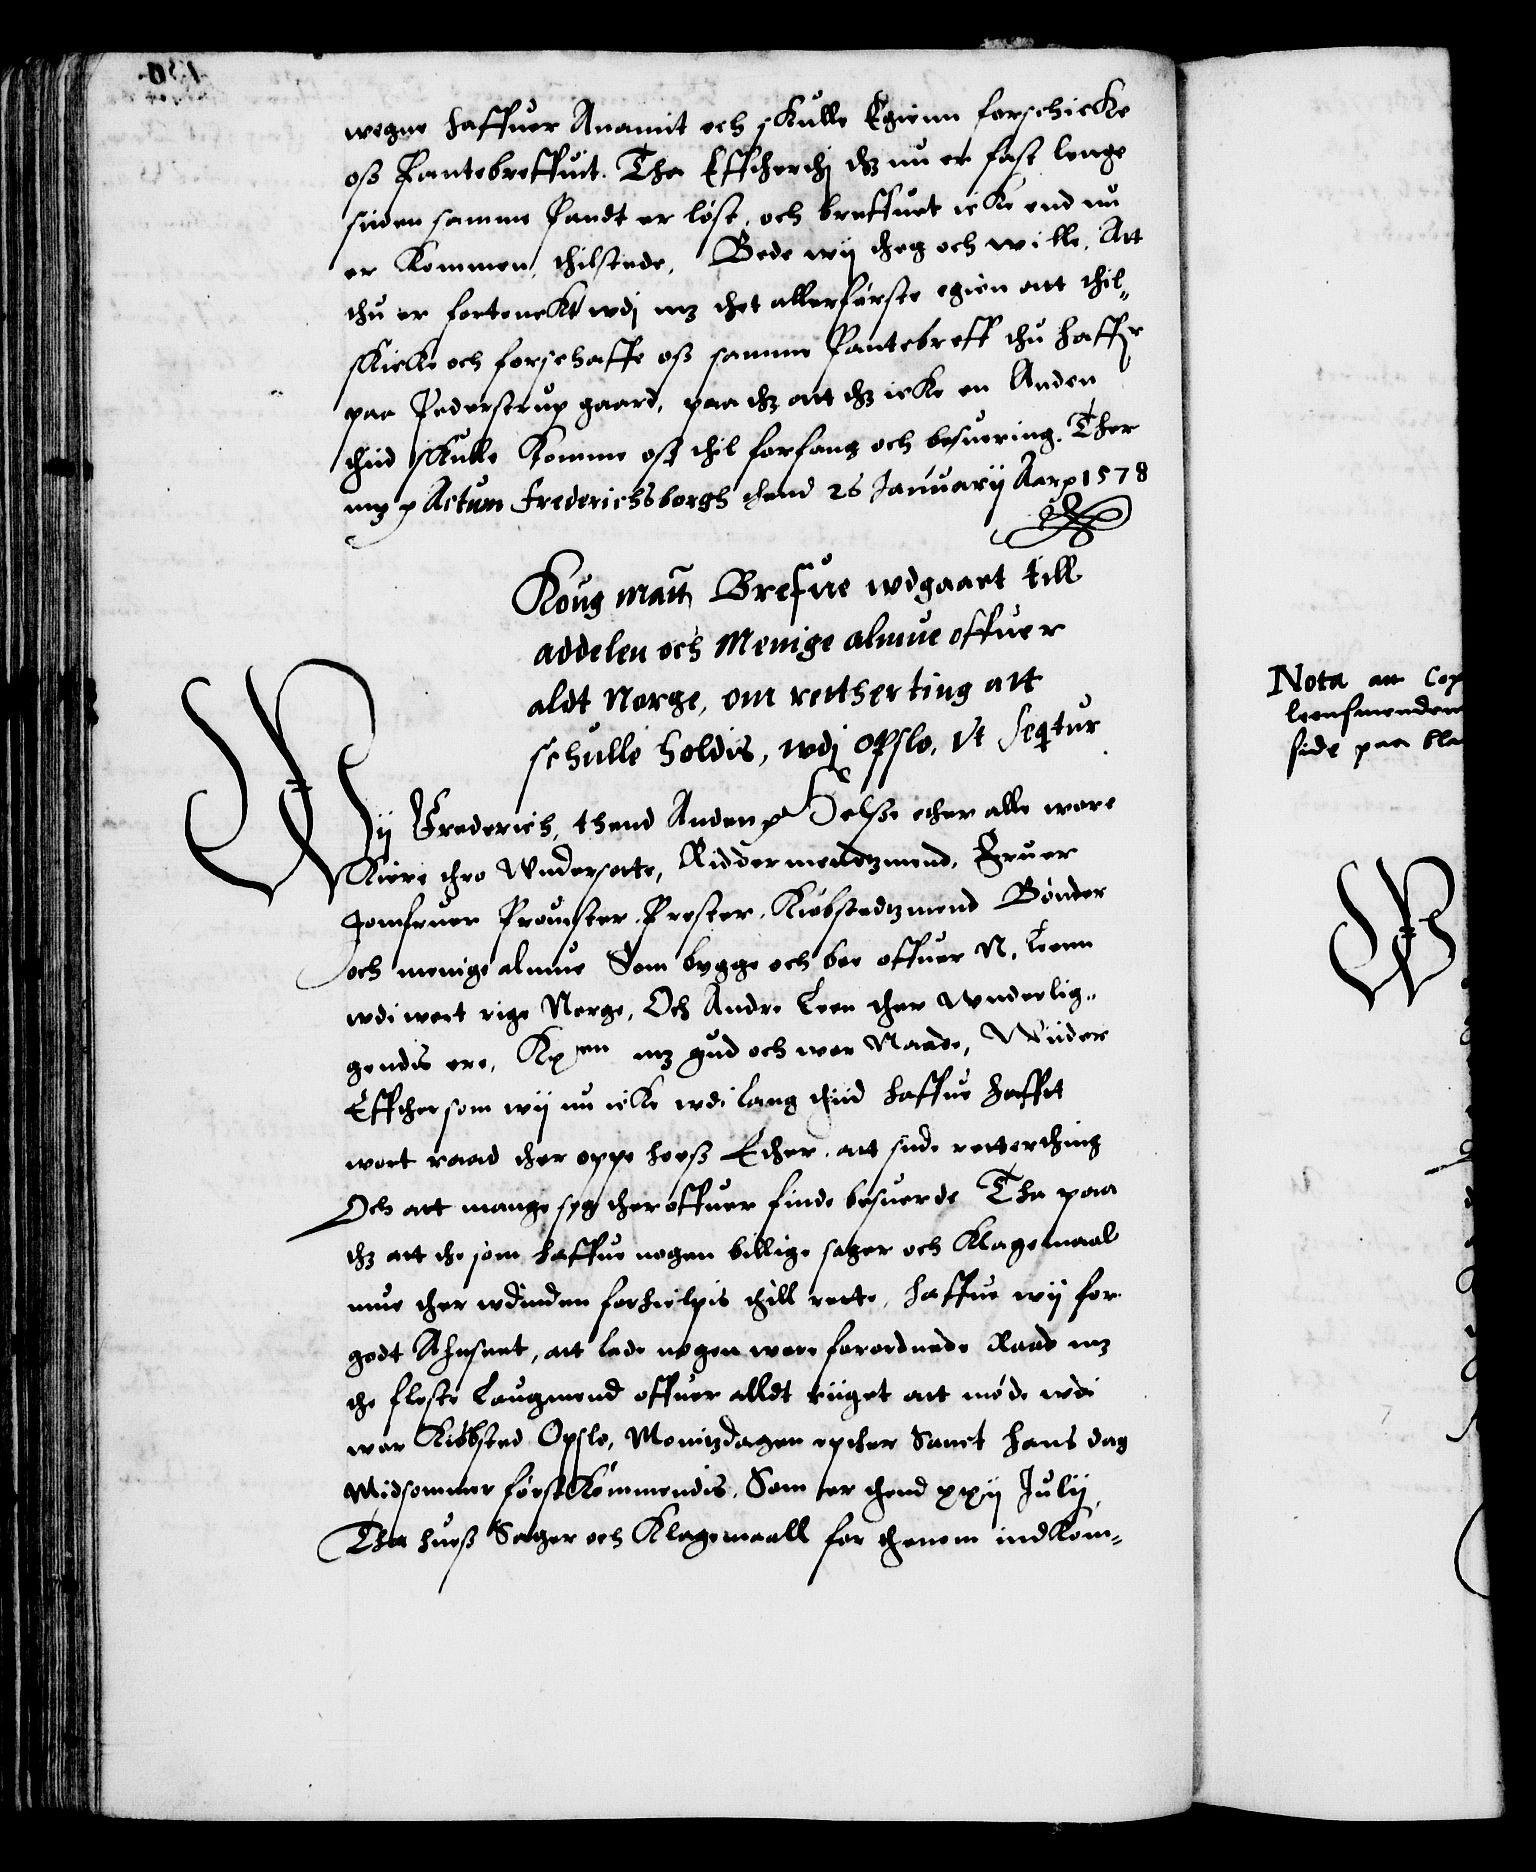 wegne haffuer Anamit och skulle Egienn forschicke
oß Pantebreffuit. Tha Effther thj thz nu er fast lenge
siiden samme Pandt er løst, och breffuet icke end nu
er kommen thilstede, Bede wij theg och wille, Att
thu er fortenckt wdj mz thet allerførste egien att thil-
skicke och forschaffe oß samme Pantebreff thu haffr
paa Pederstrup gaard, paa thz att thz icke en Anden
thiid skulle komme oß thil forfang och besuering. Ther
mz p Actum Frederichsborgh thend 26 Januarij Aar p 1578
Kong Matts Breffue wdgaaet till
addelen och Menige almue offuer
aldt Norge, om retther ting att
schulle holdis, wdj Opslo, Vt Seqtur
Wij Frederich, thend Anden p Helße ether alle wore
Kiere thro Wndersotte, Riddermendtzmend, Fruer
Jomfruer Prouster, Prester, Kiøbstedtzmend Bønder
och menige almue Som bygge och boe offuer N. Leenn
wdi wort rige Norge, Och Andre Leen ther Wnderlig-
gendis ere, Kp en mz gud och wor Naade, Wiider
Effthersom wij nu icke wdi lang thiid haffue hafft
wort raad ther oppe hooß Ether, att side retterthing
Och att mange seg ther offuer finde besuerde Tha paa
thz att the som haffue nogen billige sager och Klagemaal
mue ther wdinden forhielpis thill rette, haffue wij for
godt Ahnseet, att lade nogen wore forordnede Raad mz
the fleste Laugmend offuer alldt riiget att møde wdi
wor Kiøbsted Opslo, Monitzdagen epther Sanct Hans dag
Midsommer førstkommendis, Som er thend xxij Julij,
Tha hues Sager och Klagemaall for thenom indkom-
Nota att Cop
leensmenden
side paa bla
W